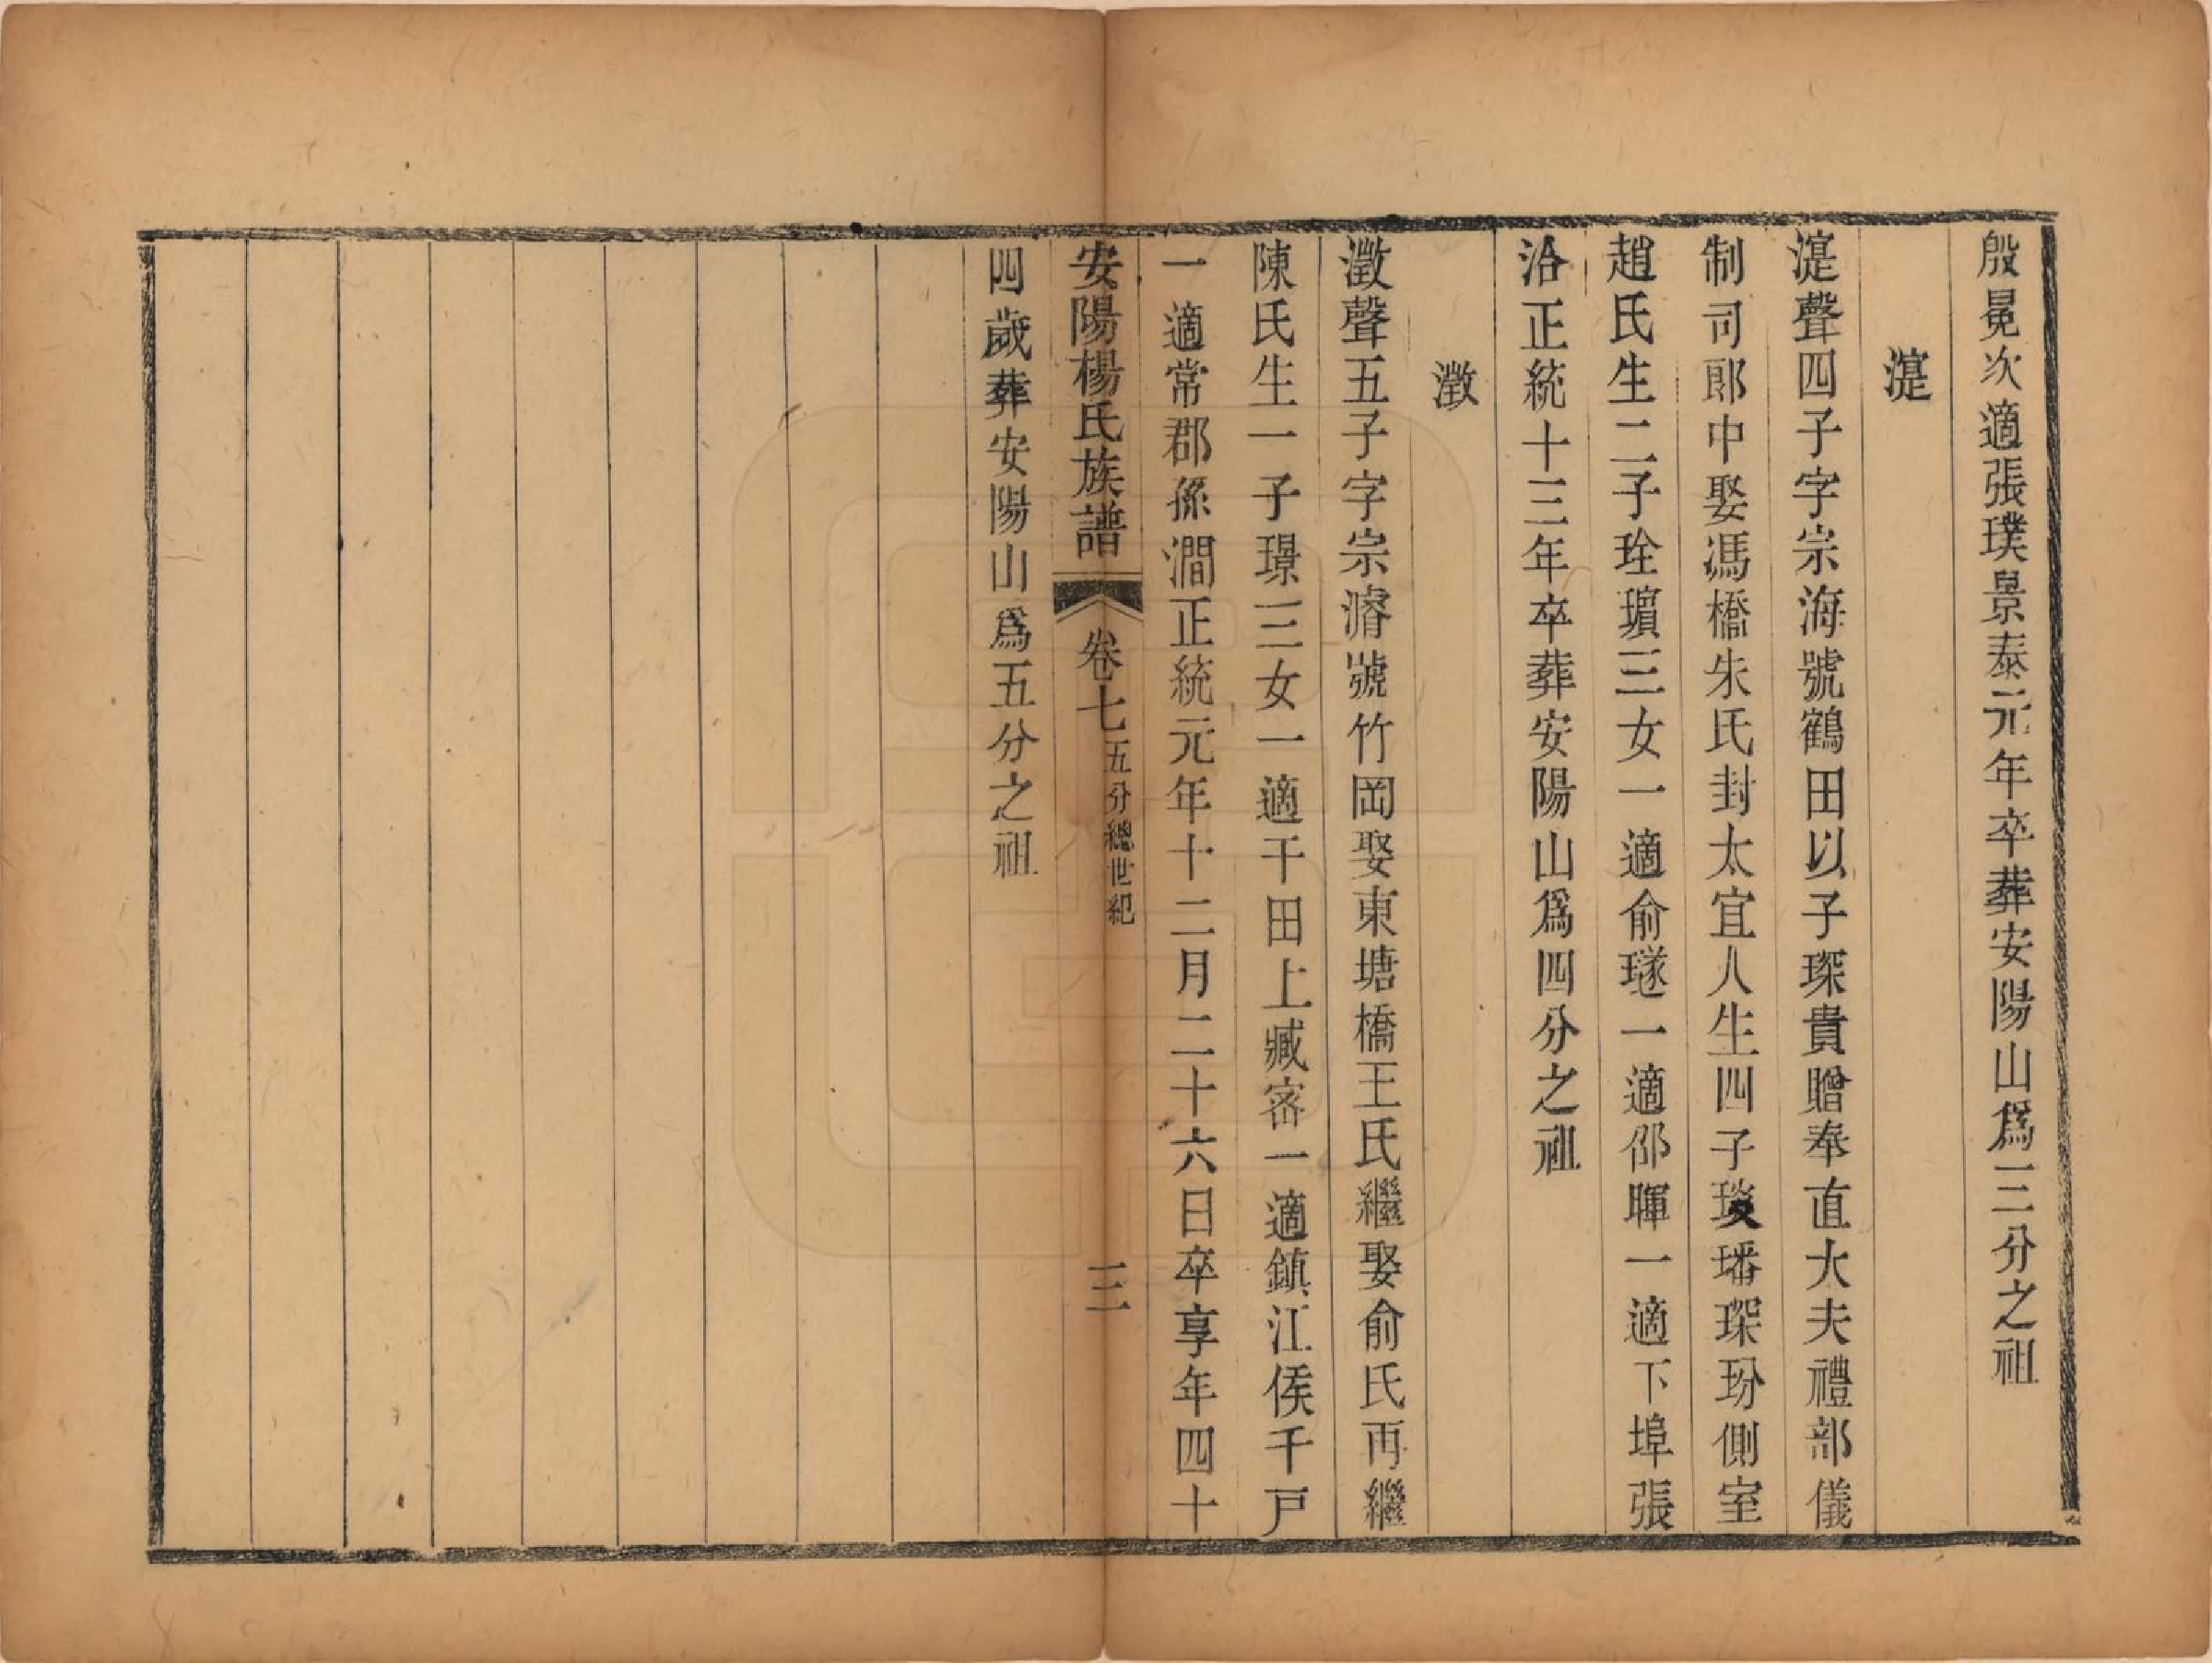 殷冕次適張璞景泰元年卒葬安陽山爲三分之祖
湜
湜聲四子字宗海號鶴田以子琛貴贈奉直大夫禮部儀
制司郎中娶馮橋朱氏封太宜人生四子琰璠琛玢側室
趙氏生二子珤璸三女一適俞璲一適邵暉一適下埠張
洽正統十三年卒葬安陽山爲四分之祖
澂
澂聲五子字宗濬號竹岡娶東塘橋王氏繼娶俞氏再繼
陳氏生一子璟三女一適千田上臧寄一適鎮江侯千戸
一適常郡孫澗正統元年十二月二十六日卒享年四十
安陽楊氏族譜 卷七 五分總世紀 三
四歲葬安陽山爲五分之祖